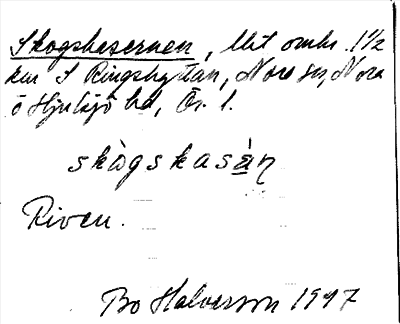 Skogskasernen, Ubt omkr. 1½
km S Ringshyttan, Nora sn, Nora
o Hjulsjö bd, Ör. l.
skògskasà̱ṇ
Riven.
Bo Halvarson 1947